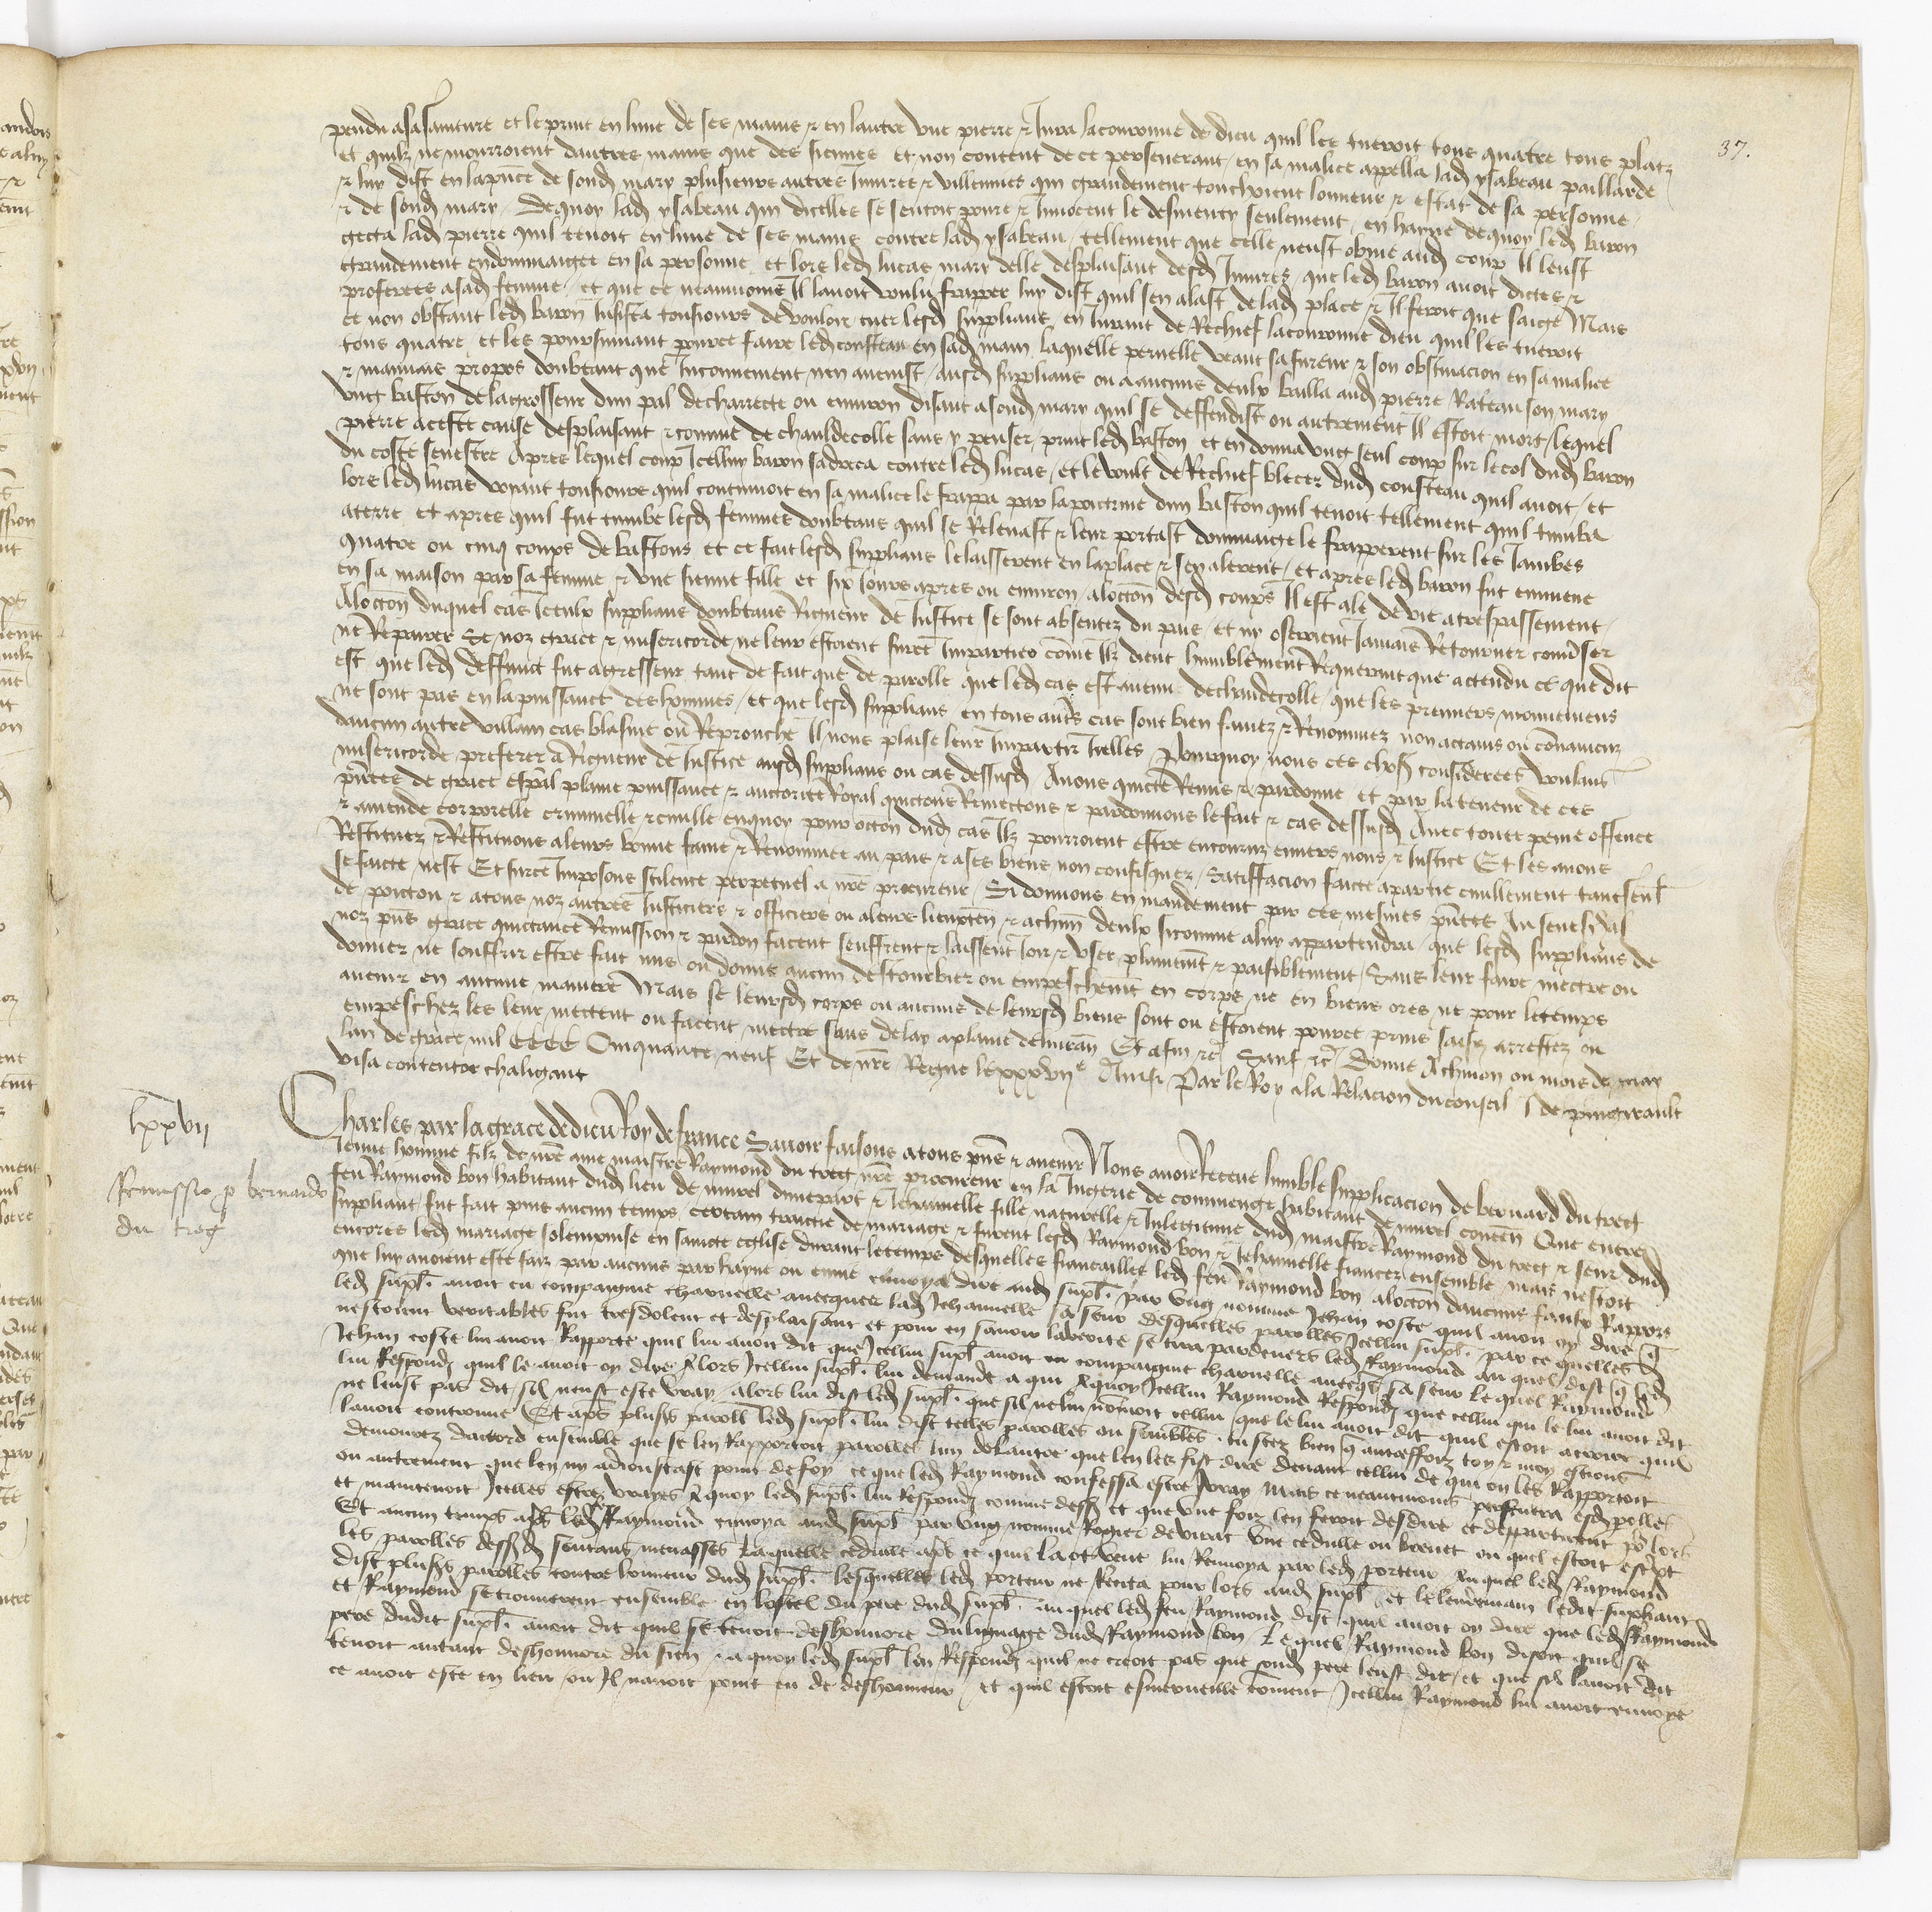 37.
pendu a sa sainture et le print en lune de ses mains & en lautre une pierre & Jura la couronne de dieu quil les tueroit tous quatre tous platz
et quilz ne mourroient dautres mains que des siennes et non content de ce perseverant en sa malice appella lad ysabeau paillarde
& luy dist en la pnce de sond mary plusieurs autres Injures & villennies qui grandement touchoient lonneur & estat de sa personne
& de sond mary / De quoy lad ysabeau qui dicelles se sentoit pure & Innocent le desmenty seulement / en hayne de quoy led baron
gecta lad pierre quil tenoit en lune de ses mains contre lad ysabeau / tellement que celle neust obvie aud coup Il leust
grandement endommaigee en sa personne et lors led lucas mary delle desplaisant desd Injures / que led baron avoit dictes &
proferees a sad femme / et que ce neantmoins Il lavoit voulu frapper luy dist quil sen alast de lad place & Il feroit que saige Mais
ce non obstant led baron Insista tousiours de vouloir tuer lesd supplians en Jurant de Rechief la couronne dieu quil les tueroit
tous quatre et les poursuivant pour ce faire led cousteau en sad main laquelle pernelle veant sa fureur & son obstinacion en sa malice
& mauvais propos doubtant que Inconvenient nen avenist ausd supplians ou a aucuns deulx bailla aud pierre Rateau son mary
ung baston de la grosseur dun pal de charrecte ou environ disant a sond mary quil se deffendist ou autrement Il estoit mort / lequel
pierre a ceste cause desplaisant & comme de chauldecolle sans y penser / print led baston et en donna ung seul coup sur le col dud baron
du coste senestre Apres lequel coup Icelluy baron sadreca contre led lucas / et le voult de Rechief blecer dud cousteau quil avoit / et
lors led lucas voyant tousiours quil continuoit en sa malice le frappa par la poictrine dun baston quil tenoit tellement quil tumba
a terre et apres quil fut tumbe lesd femmes doubtans quil se Relevast & leur portast dommaige le frapperent sur les Jambes
quatre ou cinq coups de bastons et ce fait lesd supplians le laisserent en la place & sen alerent / et apres led baron fut enmene
en sa maison par sa femme & une sienne fille et six Jours apres ou environ a loccon desd coups Il est ale de vie a trespassement
A loccon duquel cas Iceulx supplians doubtans Rigueur de Justice se sont absentez du pais / et ny oseroient Jamais Retourner conv̄ser
ne Reparer Se noz grace & misericorde ne leur estoient sur ce Imparties com̄e Ilz dient humblement Requerant que actendu ce que dit
est que led deffunct fut aggresseur tant de fait que de parolle que led cas est avenu de chaudecolle / que les premiers mouvemens
ne sont pas en la puissance des hommes / et que lesd supplians en tous autr̄s cas sont bien famez & Renommez non actains ou convaincuz
daucun autre villain cas blasme ou Reprouche Il nous plaise leur Impartir Icelles Pourquoy nous ces chos̄ considerees voulans
misericorde preferer a Rigueur de Justice ausd supplians ou cas dessusd Avons quicte Remis & pardonne et par la teneur de ces
pn̄tes de grace esp̄al plaine puissance & auctorite Royal quictons Remectons & pardonnons le fait & cas dessusd Avec toute peine offence
& amende corporelle criminelle & civille en quoy pour occon dud cas Ilz pourroient estre encouruz envers nous & Justice Et les avons
Restituez & Restituons a leurs bonne fame & Renommee au pais & a ses biens non confisquez / Satiffacion faicte a partie civillement tant seul̄
se faicte nest Et sur ce Imposons scilence perpetuel a nr̄e procureur / Si donnons en mandement par ces mesmes pn̄tes Au seneschal
de poictou & a tous noz autres Justiciers & officiers ou a leurs lieuxten̄ & a chun̄ deulx si comme a luy appartendra / que lesd supplians de
noz pn̄s grace quictance Remission & pardon facent seuffrent & laissent Joir & user plainemt & paisiblement / Sans leur faire mectre ou
donner ne souffrir estre fait mis ou donne aucun destourbier ou empeschemt en corps ne en biens ores ne pour le temps
avenir en aucune maniere Mais se leursd corps ou aucuns de leursd biens sont ou estoient pour ce prins saisiz arrestez ou
empeschez les leur mectent ou facent mectre sans delay a plaine delivrān Et afin &c̄ Sauf &c̄ Donne A chinon ou mois de may
lan de grace mil CCCC Cinquante neuf Et de nr̄e Regne le xxxvııᵉ Ainsi Par le Roy a la Relacion du conseil J de pingirault
visa contentor chaligant
lxxvıı
Remissio p bernardo
du trog
Charles par la grace de dieu Roy de france Savoir faisons a tous pn̄s & avenir Nous avoir Receue humble supplicacion de bernard du trog
Jeune homme filz de nr̄e ame maistre Raymond du trog nr̄e procureur en la Jugerie de commenge habitant de murel conten̄ Que entre
feu Raymond bon habitant dud lieu de murel dune part & Jehannelle fille naturelle & Inlegitime dud maistre Raymond du trog & seur dud
suppliant / fut fait puis aucun temps certain traictie de mariage & furent lesd Raymond bon & Jehannelle fiancez ensemble mais nestoit
encores led mariage solempnise en saincte eglise durant le temps desquelles fiancailles led feu Raymond bon a loccon daucuns faulx Rappors
que luy avoient este faiz par aucuns par hayne ou envie envoya dire aud supl̄. par ung nomme Jehan coste quil avoit oy dire q̄
led supl̄. avoit eu compaignie charnelle avecques lad Jehannelle sa seur desquelles parolles Icellui supl̄. par ce quelles
nestoient veritables fut tresdolent et desplaisant et pour en savoir la verite se tira pardevers led Raymond auquel dist q̄ led
Jehan coste lui avoit Rapporte quil lui avoit dit que Icellui supl̄ avoit eu compaignie charnelle avecq̄s sa seur Lequel Raymond
lui Respondi quil le avoit oy dire Alors Icellui supl̄. lui demanda a qui A quoy Icellui Raymond Respondi que cellui qui le lui avoit dit
ne leust pas dit sil neust este vray / alors lui dist led supl̄. que sil ne lui nōmoit cellui que le lui avoit dit quil estoit acroire quil
lavoit controuve Et ap̄s plus̄s parol̄l led supl̄. lui dist telles parolles ou sēmblēs. tu scez bien q̄ autreffoiz toy & moy estions
demourez daccord ensemble que se len Rapportoit parolles lun de lautre que len les fist dire devant cellui de qui on les Rapportoit
ou autrement que len ny adioustast point de foy ce que led Raymond confessa estre vray Mais ce neantmoins persevera esd pol̄les
et maintenoit Icelles estre vrayes A quoy led supl̄. lui Respondi comme dess̄ et que une foiz len feroit desdire et departirent po^r lors
Et aucun temps ap̄s led Raymond envoya aud supl̄ par ung nomme Rogier de virac une cedulle ou brevet ou quel estoit esc̄pt
les parolles dess̄d sentans menasses Laquelle cedulle ap̄s ce quil la ot veue lui Renvoya par led porteur Auquel led Raymond
dist plus̄s parolles contre lonneur dud supl̄. lesquelles led porteur ne Recita pour lors aud supl̄ / et le lendemain ledit suppliant
et Raymond se trouverent ensemble en lostel du pere dud supl̄. auquel led feu Raymond dist quil avoit oy dire que led Raymond
pere dudit supl̄. avoit dit quil se tenoit deshonnore du lignage dud Raymond bon / Lequel Raymond bon disoit quil se
tenoit autant deshonnore du sien / a quoy led supl̄ lui Respondi quil ne creoit pas que sond pere leust dit / et que sil lavoit dit
ce avoit este en lieu ou Il navoit point eu de deshonneur / et quil estoit esmerveille com̄ent Icellui Raymond lui avoit envoye